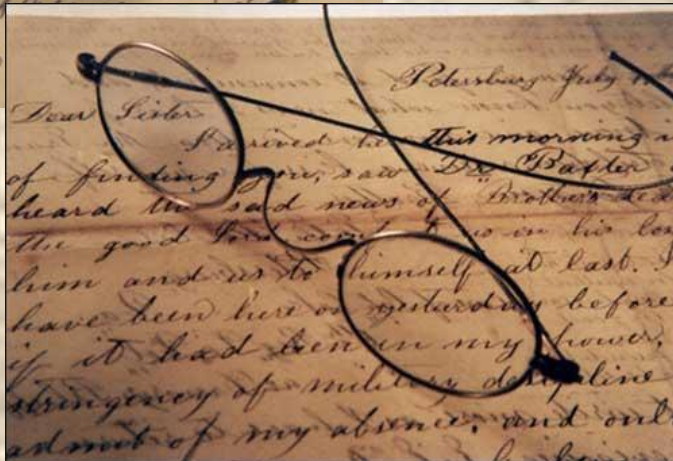 Petersburg July
Dear Sister
I arrived this morning
of finding you, saw Dr
heard the sad news of Brother's
the good in his
him and us to himself at last. I
have been here on yesterday before
if it had been in my power,
stringency of military
admit of my absence, and only